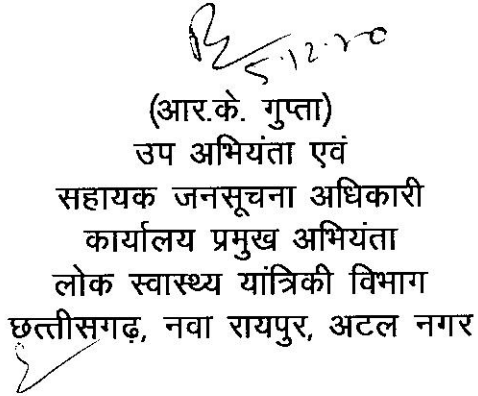 5.12.20
(आर.के. गुप्ता)
उप अभियंता एवं
सहायक जनसूचना अधिकारी
कार्यालय प्रमुख अभियंता
लोक स्वास्थ्य यांत्रिकी विभाग
छत्तीसगढ़, नवा रायपुर, अटल नगर